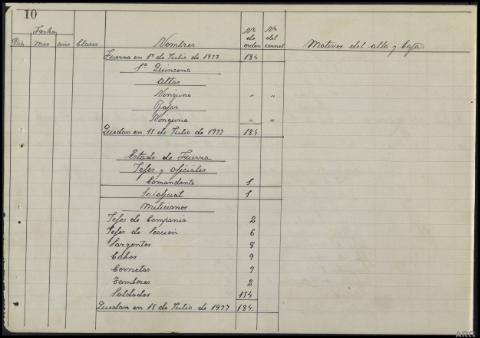 10
Fecha
Día mes año Clases Nombres Nº de orden Nº del carnet Motivos del alta y baja
Fuerza en 1º de Julio de 1937 184
1ª Quincena
Altas
Ninguna " "
Bajas
Ninguna " "
Quedan en 15 de Julio de 1937 184
Estado de Fuerza
Jefes y oficiales
Comandante 1
1
Milicianos
Jefes de Compañia 2
Jefes de Sección 6
Sargentos 8
Cabos 9
Cornetas 3
Tambores 2
Soldados 154
Quedan en 15 de Julio de 1937 184